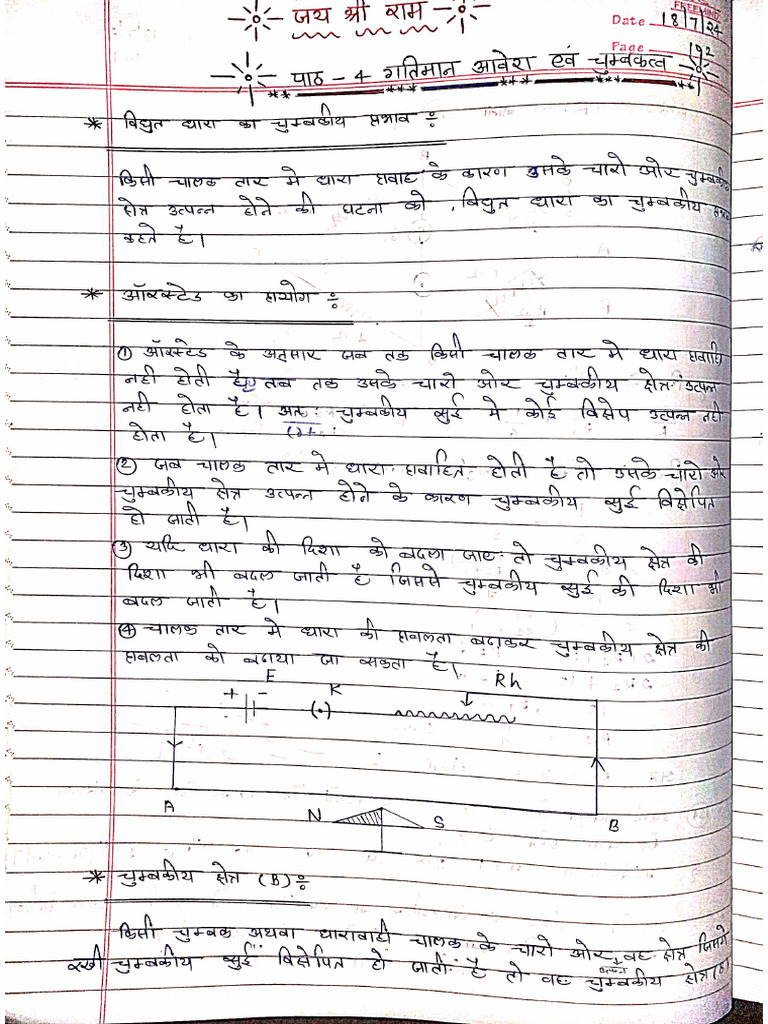 जय श्री राम
FREEMIND
Date 18/7/24
Page 192
पाठ - 4 गतिमान आवेश एवं चुम्बकत्व
* विद्युत धारा का चुम्बकीय प्रभाव ÷
किसी चालक तार मे धारा प्रवाह के कारण उसके चारो ओर चुम्बकीय
क्षेत्र उत्पन्न होने की घटना को , विद्युत धारा का चुम्बकीय प्रभाव
कहते है।
* ऑरस्टेड का प्रयोग ÷
① ऑरस्टेड के अनुसार जब तक किसी चालक तार मे धारा प्रवाहि
नही होती है, तब तक उसके चारो ओर चुम्बकीय क्षेत्र उत्पन्न
नही होता है। अतः चुम्बकीय सुई मे कोई विक्षेप उत्पन्न नही
होता है।
② जब चालक तार मे धारा प्रवाहित होती है तो उसके चारो ओर
चुम्बकीय क्षेत्र उत्पन्न होने के कारण चुम्बकीय सुई विक्षेपित
हो जाती है।
③ यदि धारा की दिशा को बदला जाए तो चुम्बकीय क्षेत्र की
दिशा भी बदल जाती है जिससे चुम्बकीय सुई की दिशा भी
बदल जाती है।
④ चालक तार मे धारा की प्रबलता बढ़ाकर चुम्बकीय क्षेत्र की
प्रबलता को बढाया जा सकता है।
E K Rh
+ - (•)
A B
N S
* चुम्बकीय क्षेत्र (B) ÷
किसी चुम्बक अथवा धारावाही चालक के चारो ओर वह क्षेत्र जिसमे
रखी चुम्बकीय सुई विक्षेपित हो जाती है तो वह चुम्बकीय क्षेत्र (B)